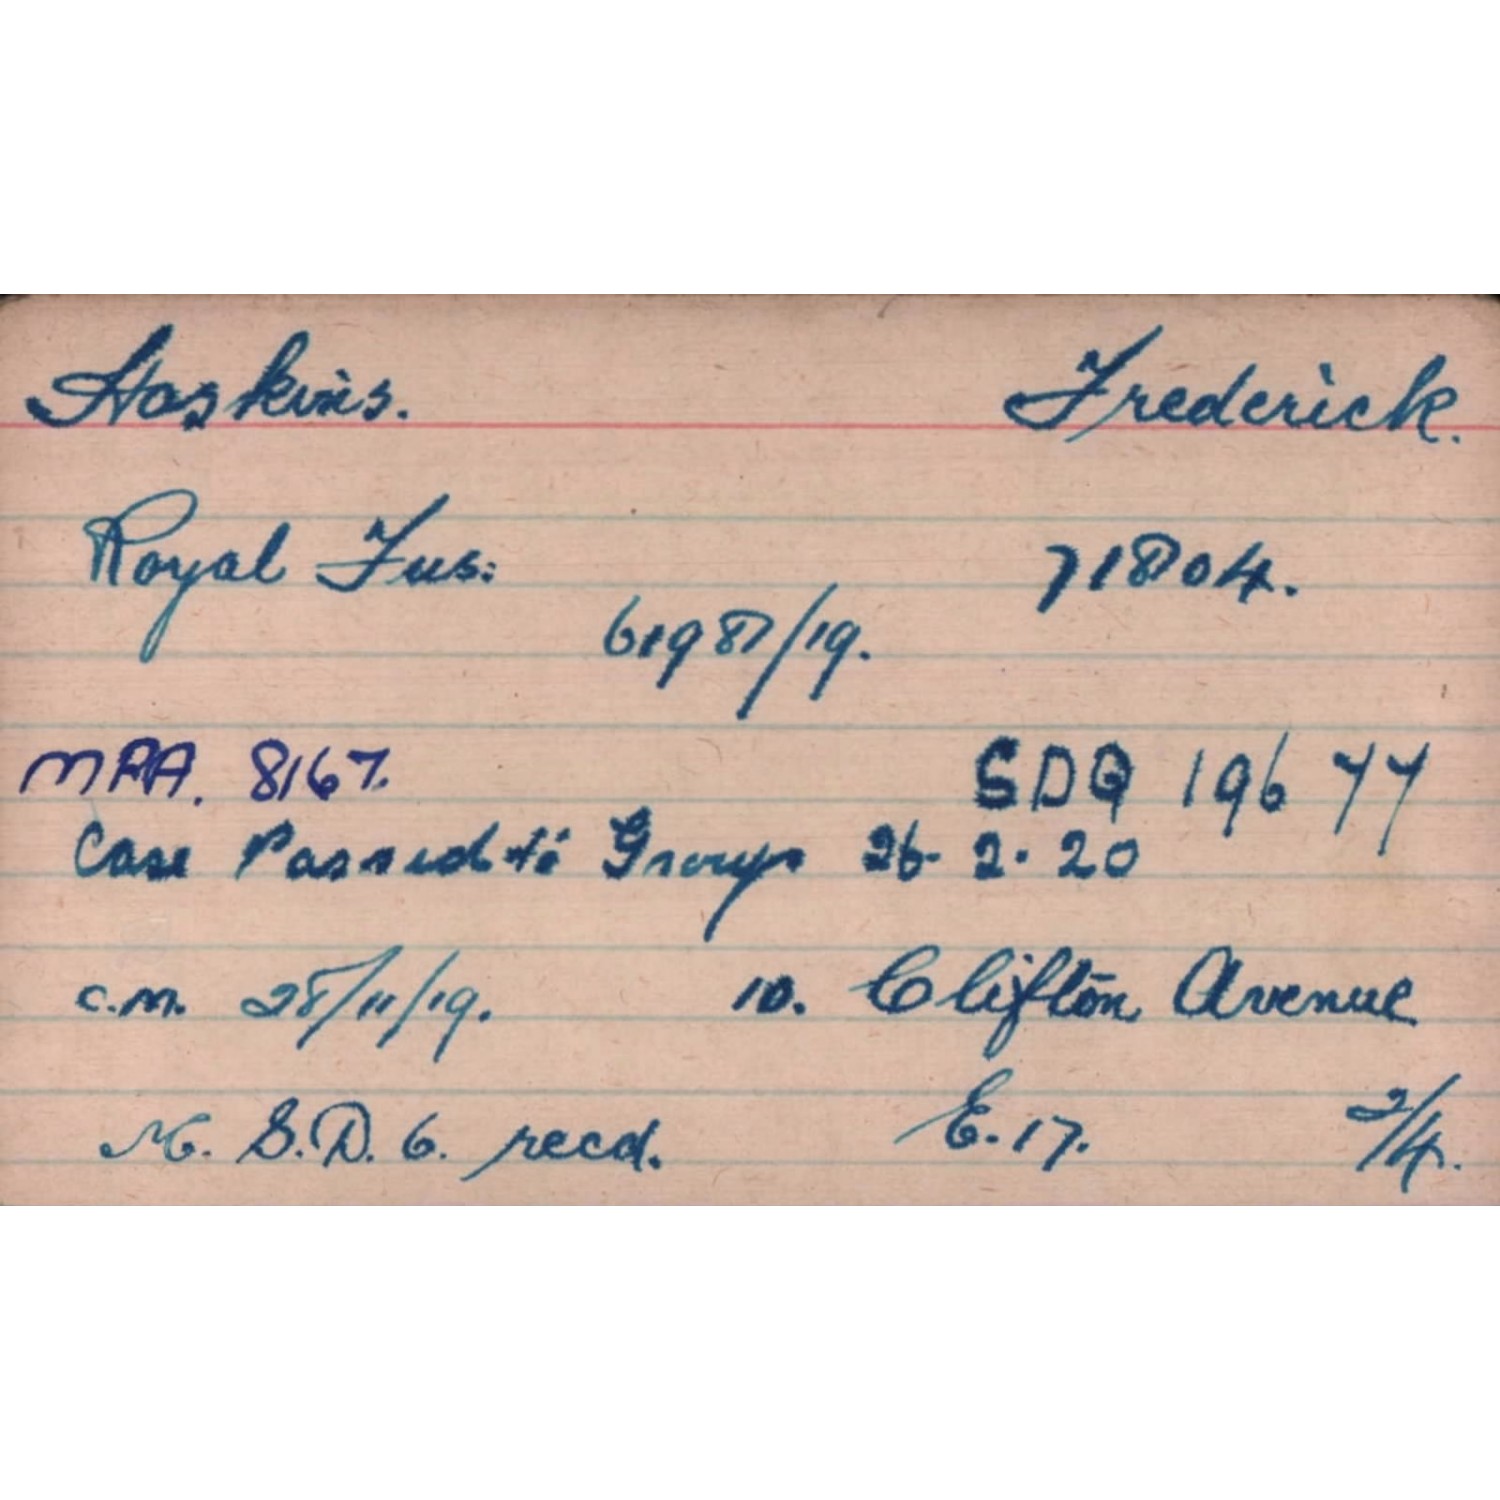 Hoskins. Frederick.
Royal Fus: 71804.
61987/19.
MRA. 8167.
SDQ 19677
Case Passed to Group 26. 2. 20
C.M. 28/11/19. 10. Clifton Avenue
S.D. 6. recd. E.17. 2/4.